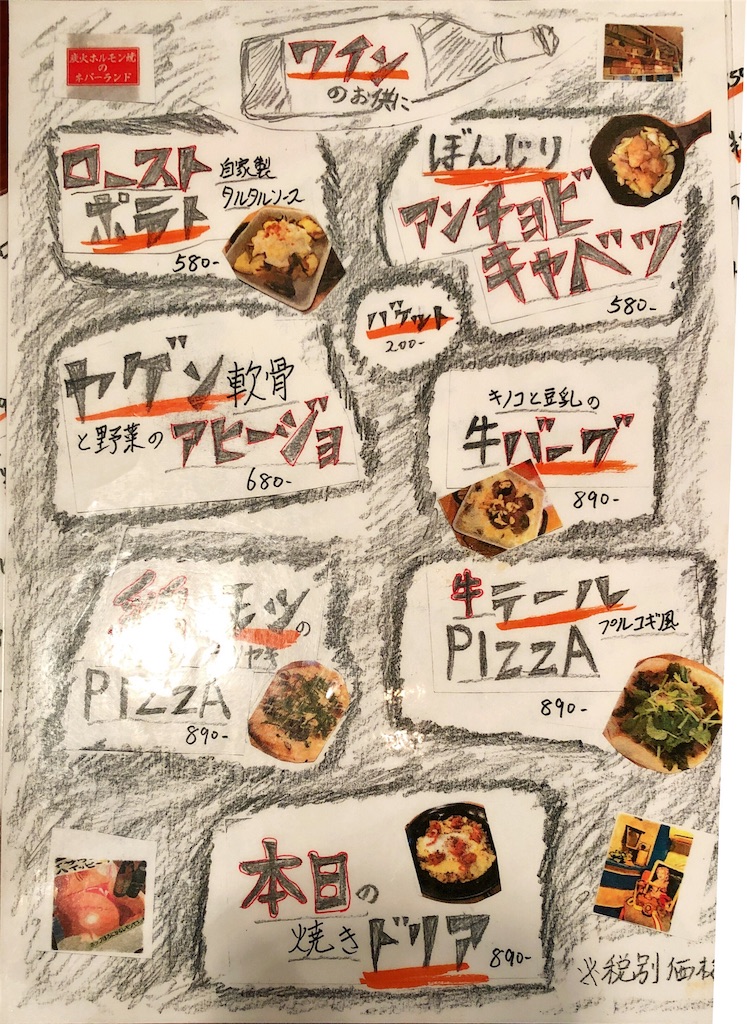 炭火ホルモン焼
の
ホパーランド
ワイン
のお供に
ロースト
ポテト
自家製
タルタルソース
580-
ぼんじり
アンチョビ
キャベツ
580-
バケット
200-
ヤゲン軟骨
と野菜のアヒージョ
680-
キノコと豆乳の
牛バーグ
890-
モツの
ヤキ
PIZZA
890-
牛テール
PIZZA プルコギ風
890-
本日の
焼きドリア
890-
※税別価格